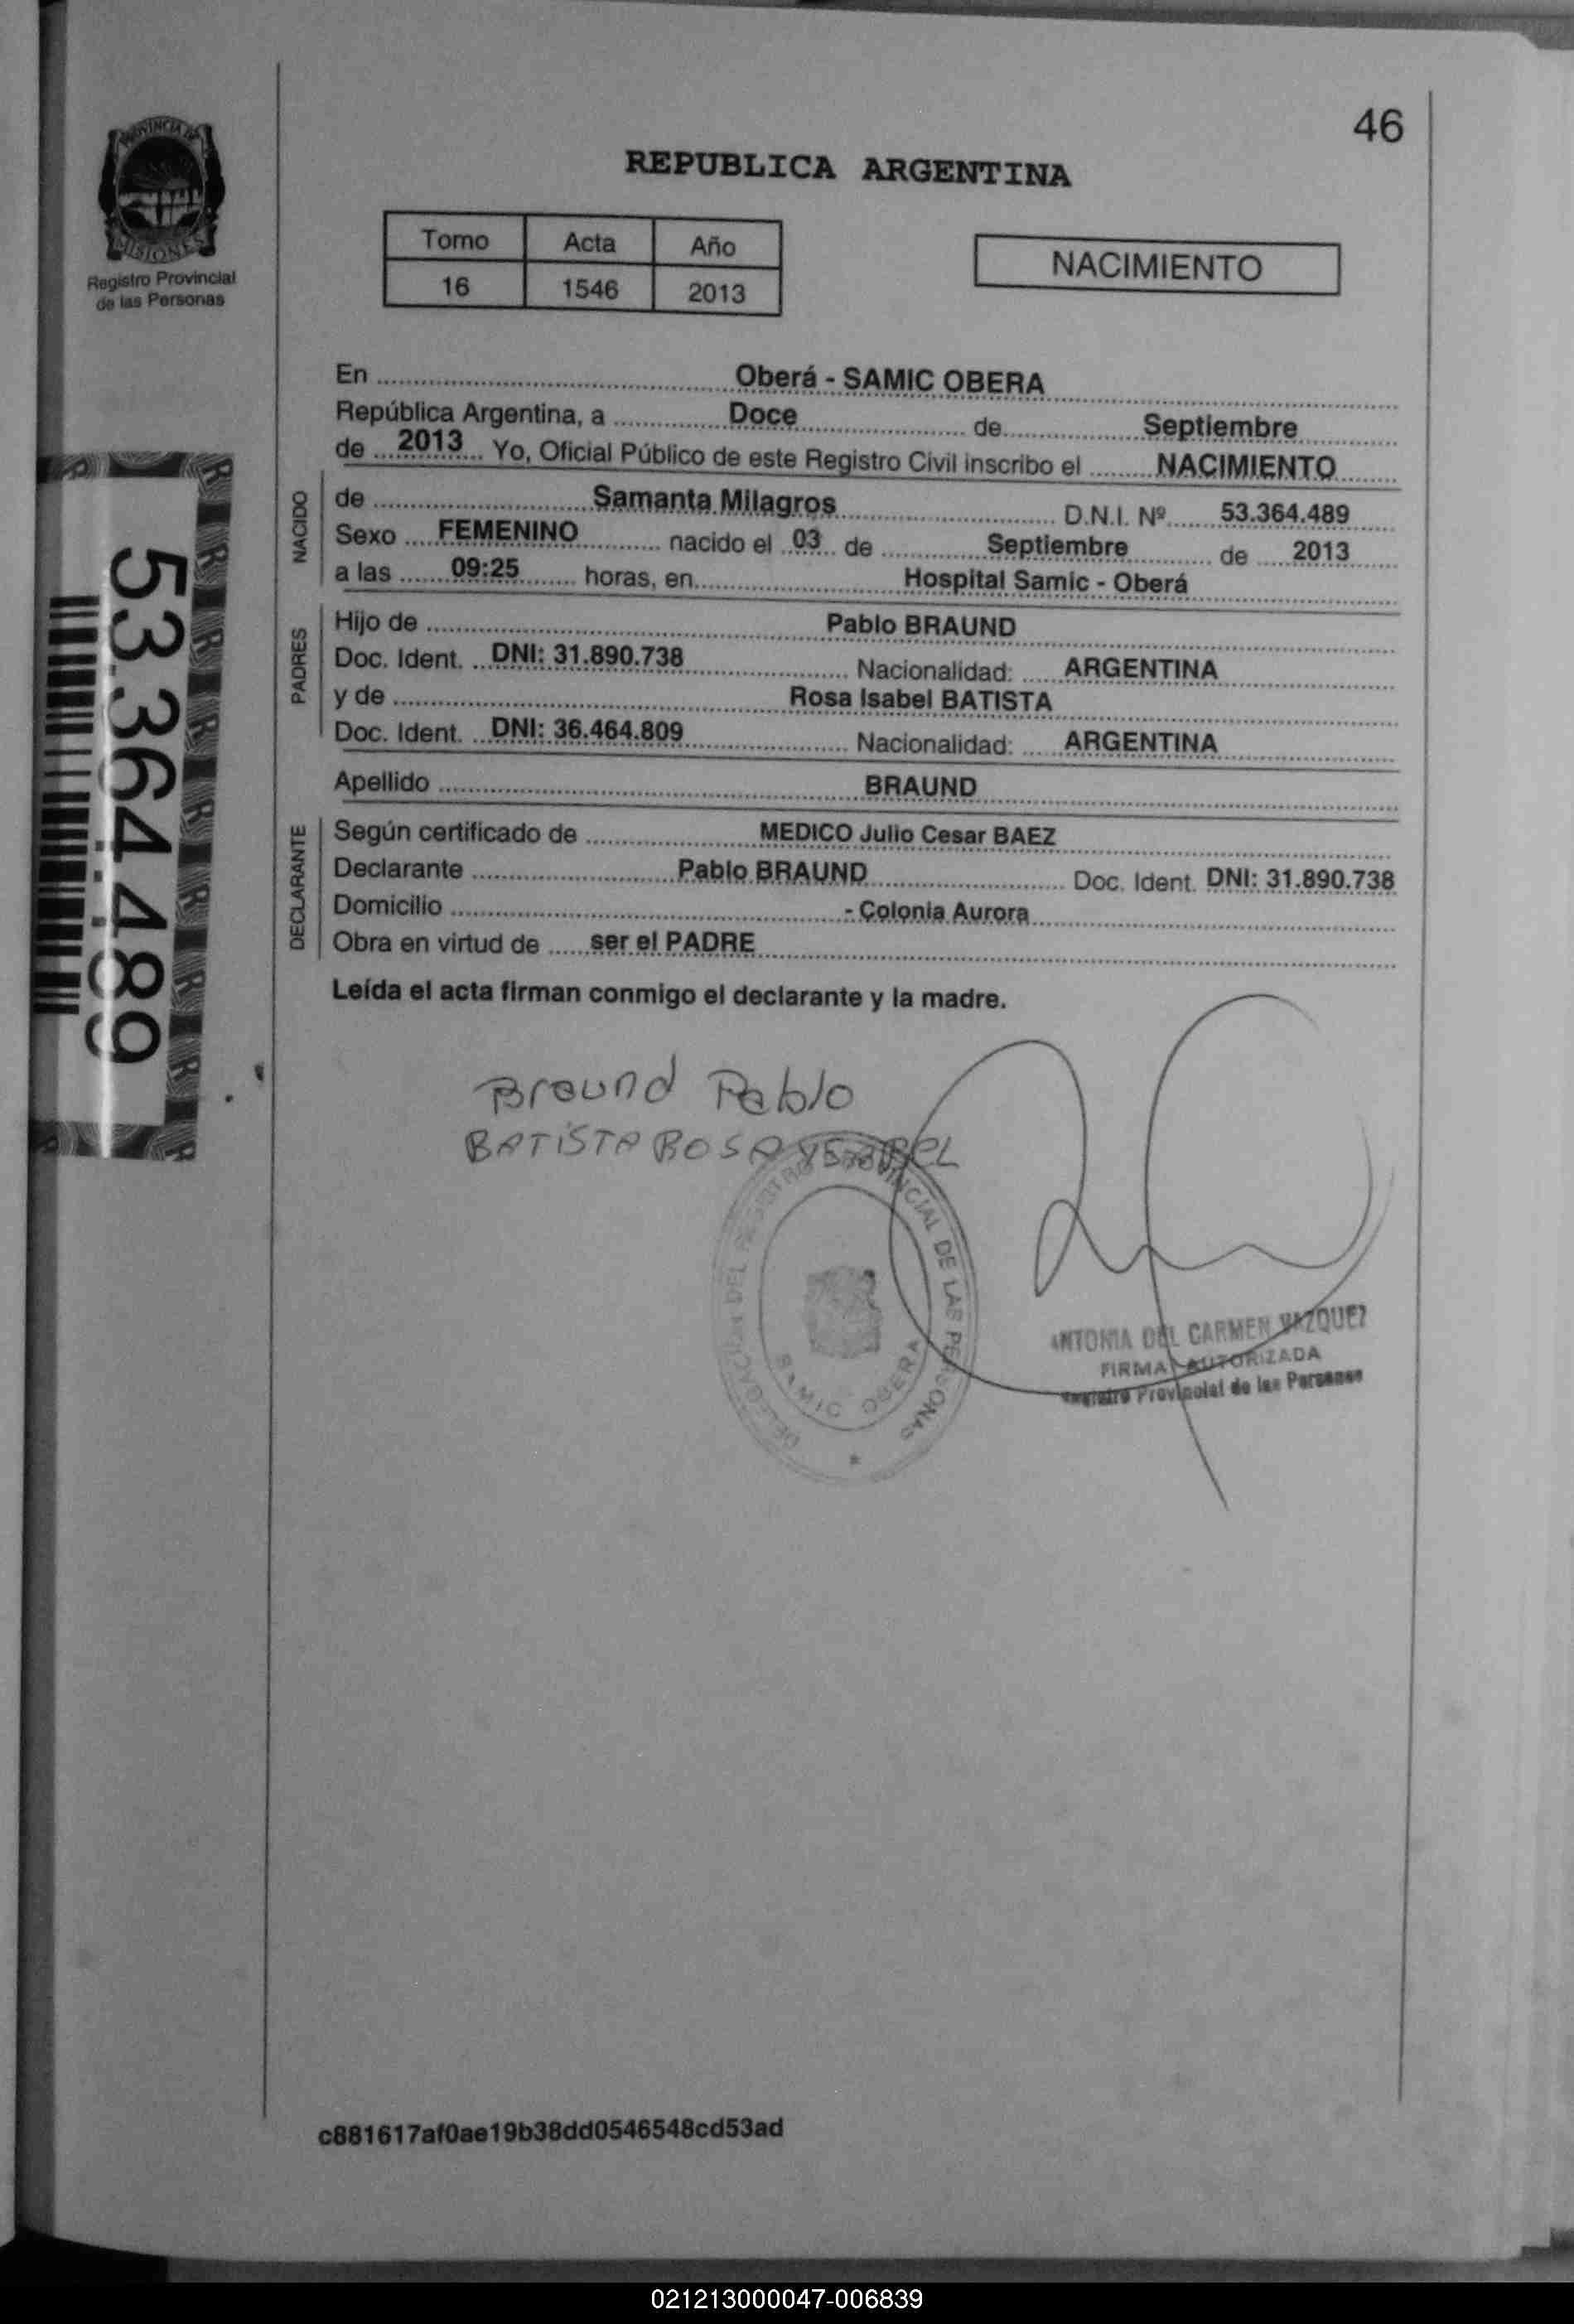 46
PROVINCIA DE
MISIONES
Registro Provincial
de las Personas
REPUBLICA ARGENTINA
Tomo Acta Año
16 1546 2013
NACIMIENTO
En Oberá - SAMIC OBERA
República Argentina, a Doce de Septiembre
de 2013 Yo, Oficial Público de este Registro Civil inscribo el NACIMIENTO
NACIDO
de Samanta Milagros D.N.I. Nº 53.364.489
Sexo FEMENINO nacido el 03 de Septiembre de 2013
a las 09:25 horas, en Hospital Samic - Oberá
PADRES
Hijo de Pablo BRAUND
Doc. Ident. DNI: 31.890.738 Nacionalidad: ARGENTINA
y de Rosa Isabel BATISTA
Doc. Ident. DNI: 36.464.809 Nacionalidad: ARGENTINA
Apellido BRAUND
DECLARANTE
Según certificado de MEDICO Julio Cesar BAEZ
Declarante Pablo BRAUND Doc. Ident. DNI: 31.890.738
Domicilio - Colonia Aurora
Obra en virtud de ser el PADRE
Leída el acta firman conmigo el declarante y la madre.
53.364.489
Braund Pablo
BATISTA ROSA
DELEGACION DEL REGISTRO PROVINCIAL DE LAS PERSONAS
SAMIC OBERA
ANTONIA DEL CARMEN VAZQUEZ
FIRMA AUTORIZADA
Registro Provincial de las Personas
c881617af0ae19b38dd0546548cd53ad
021213000047-006839